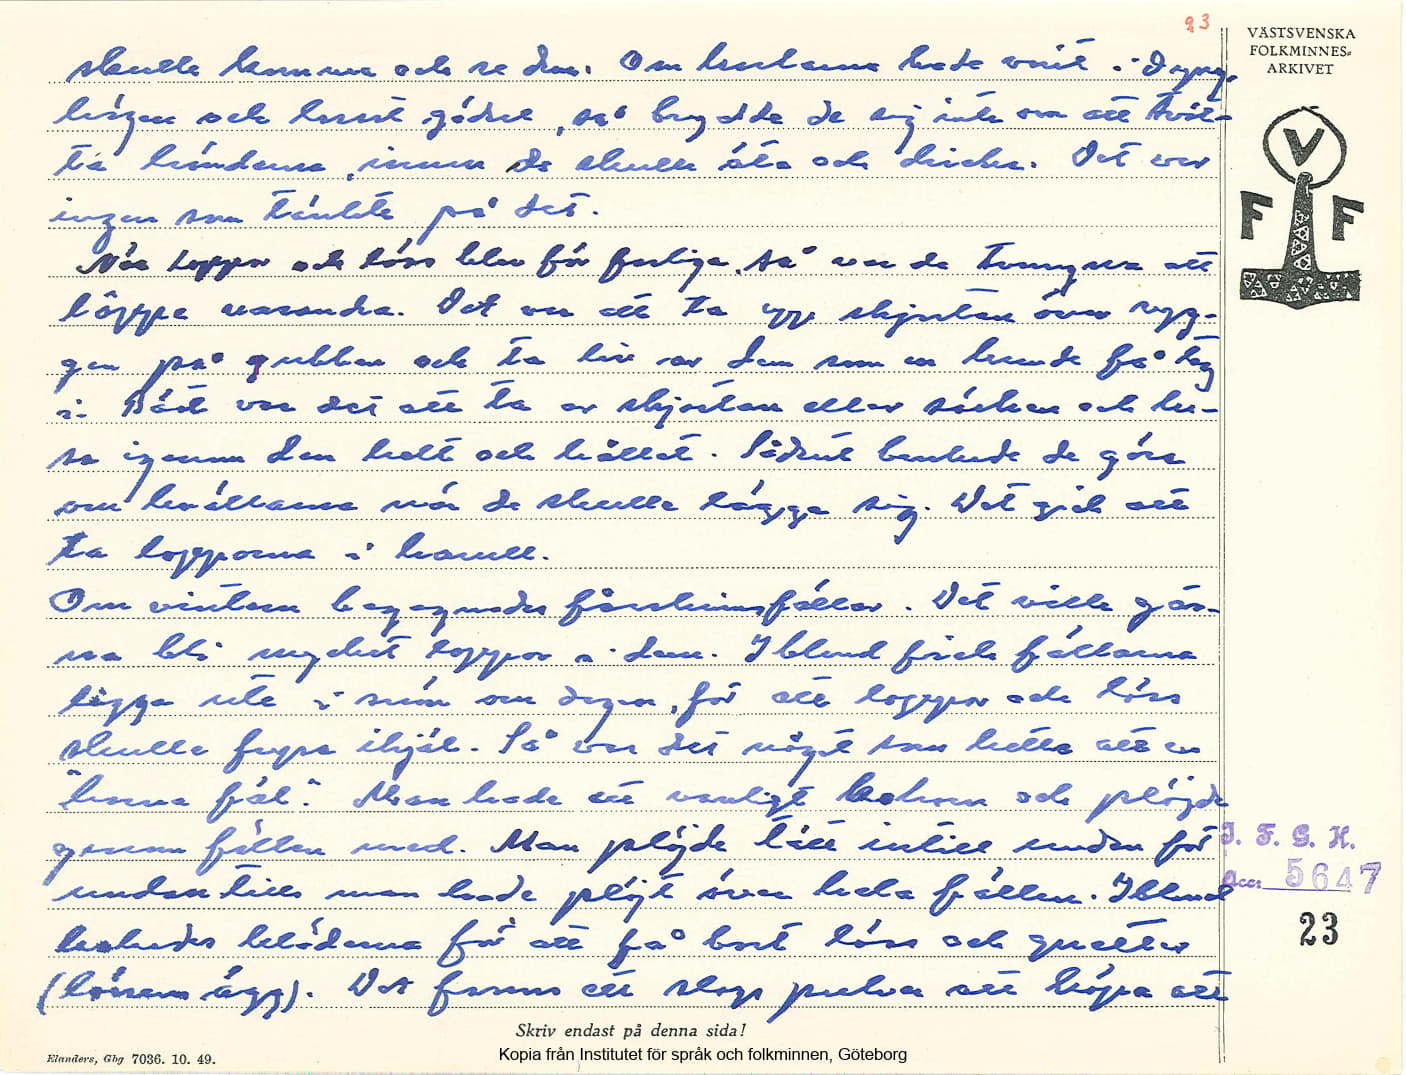 23
VÄSTSVENSKA
FOLKMINNES-
ARKIVET
V
F F
skulle komma och se dem. Om karlarna hade varit i dyng-
högen och kasst gödsel, så brydde de sig inte om att tvät-
ta händerna, innan de skulle äta och dricka. Det var
ingen som tänkte på det.
När loppor och löss blev för farliga, så var de tvungna att
löppa varandra. Det var att ta upp skjortan över ryg-
gen på gubben och ta livet av dem som en kunde få tag
i. Bäst var det att ta av skjortan eller särken och lu-
sa igenom den helt och hållet. Sådant brukade de göra
om kvällarna när de skulle lägga sig. Det gick att
ta lopporna i
Om vintern begagnades fårskinnsfällar. Det ville gär-
na bli mycket loppor i dem. Ibland fick fällarna
ligga ute i snön om dagen, för att loppor och löss
skulle frysa ihjäl. Så var det något som hette att en
fäl". Man hade ett vanligt och plöjde
genom fällen med. Man plöjde tätt intill undan för
undan tills man hade plöjt över hela fällen. Ibland
kokades kläderna för att få bort löss och gnetter
(lössens ägg). Det fanns ett slags pulver att köpa att
J. F. G. H.
Acc: 5647
23
Skriv endast på denna sida!
Elanders, Gbg 7036. 10. 49.
Kopia från Institutet för språk och folkminnen, Göteborg